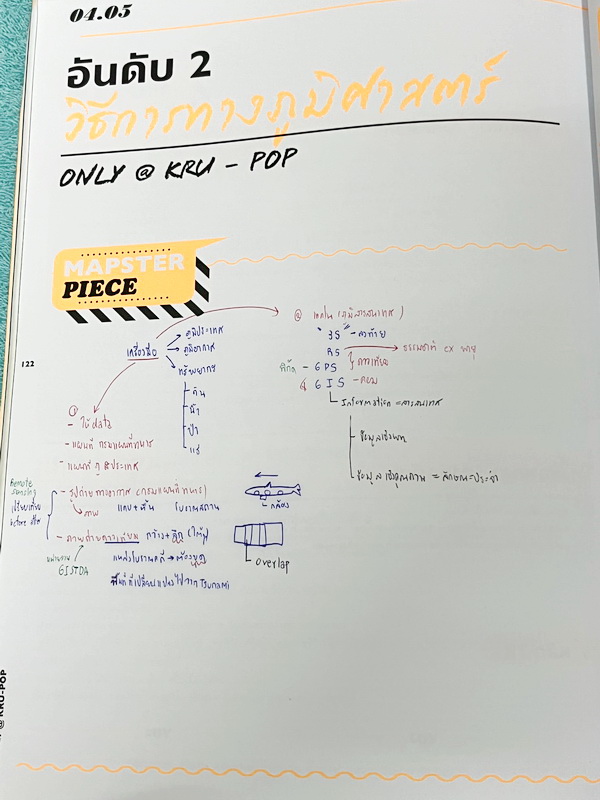 04.05
อันดับ 2
วิธีการทางภูมิศาสตร์
ONLY @ KRU - POP
MAPSTER
PIECE
122
เครื่องมือ
ภูมิประเทศ
ภูมิอากาศ
ทรัพยากร
ดิน
น้ำ
ป่า
แร่
② (ภูมิสารสนเทศ)
"3S"
RS ธรรมชาติ ex พายุ
พิกัด - GPS ดาวเทียม
GIS - คอม
Information = สารสนเทศ
ข้อมูลเชิง
ข้อมูลเชิงคุณภาพ = ลักษณะประจำ
①
- ให้ data
- แผนที่ กรมแผนที่ทหาร
- แผนที่
Remote
sensing
เปรียบเทียบ
before
- รูปถ่ายทางอากาศ (กรมแผนที่ทหาร)
ภาพ โบราณสถาน
กล้อง
- ภาพถ่ายดาวเทียม กว้าง+ลึก
หน่วยงาน
GISTDA
overlap
พื้นที่ที่เปลี่ยนแปลงไปจาก Tsunami
@ KRU-POP